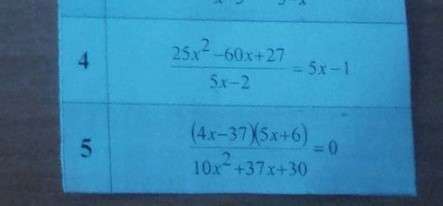 4 \frac{25x^2-60x+27}{5x-2} = 5x-1
5 \frac{(4x-37)(5x+6)}{10x^2+37x+30} = 0